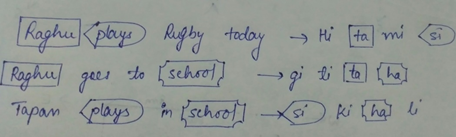 Raghu plays Rugby today → Hi ta mi si
Raghu goes to school → gi li ta ha
Tapan plays in school → si ki ha li